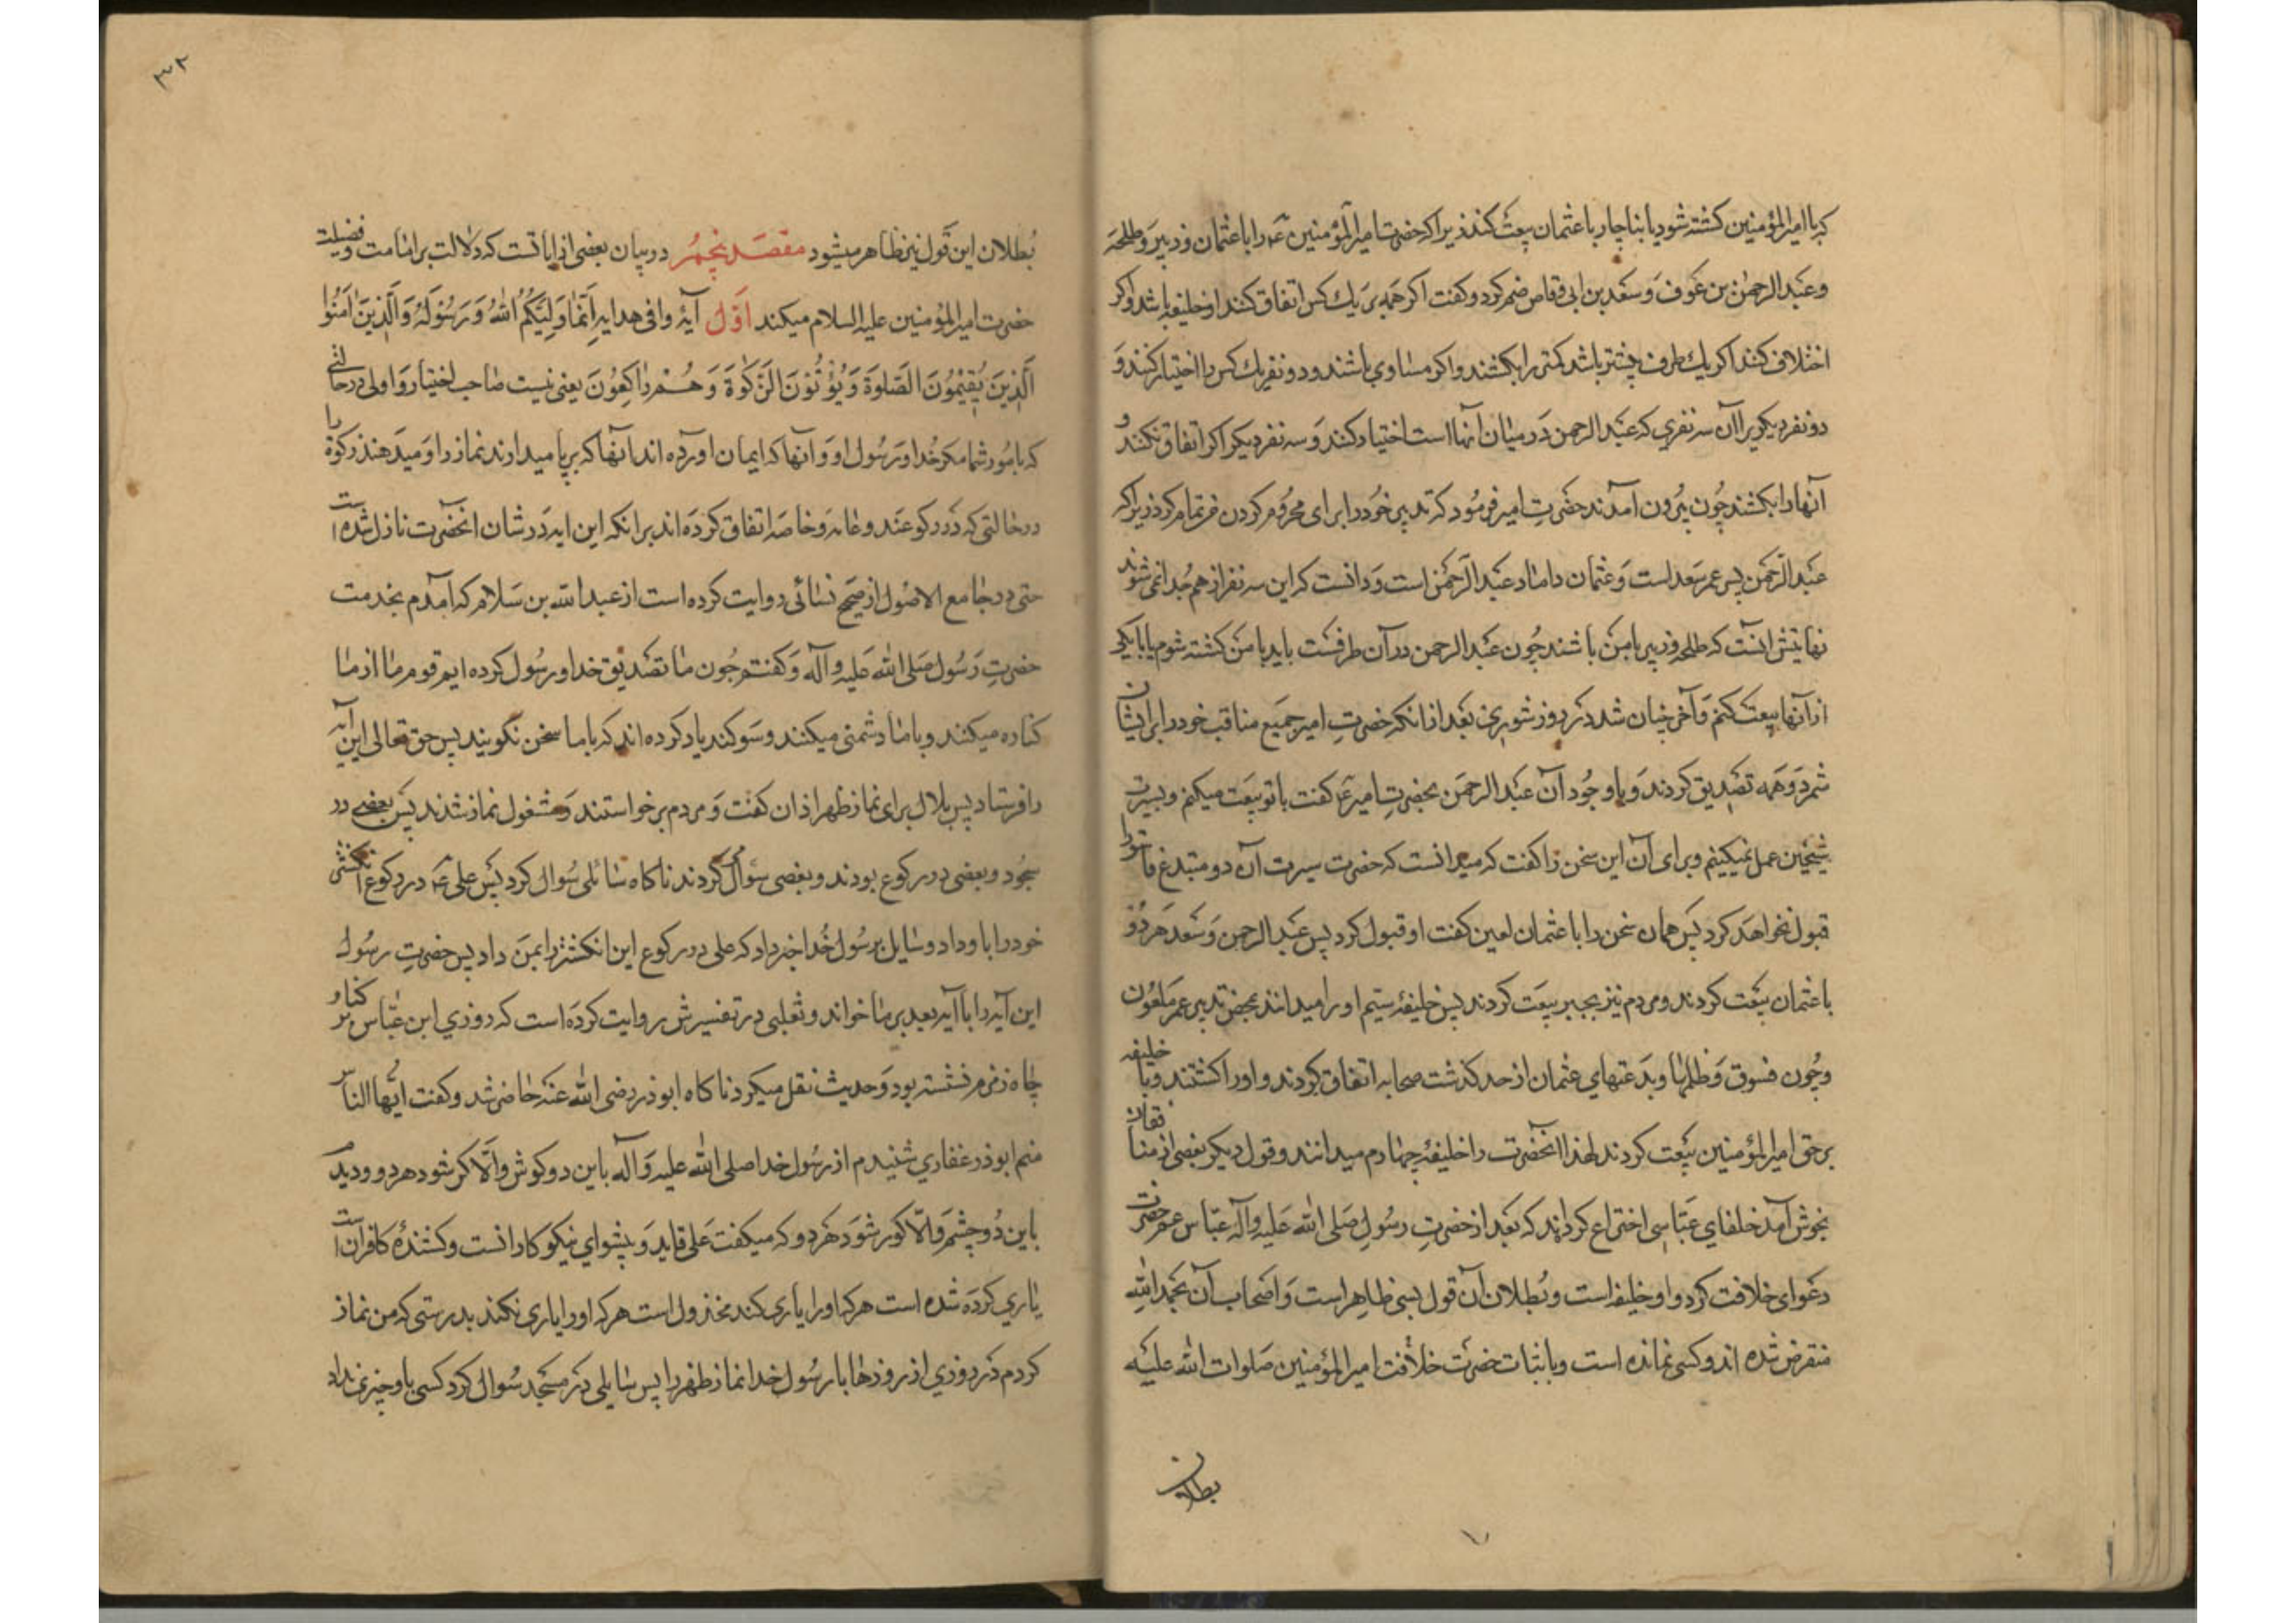 که با امیرالمؤمنین کشته شود یا بناچار با عثمان بیعت کند زیرا که حضرت امیرالمؤمنین ع را با عثمان و زبیر و طلحه
و عبدالرحمن بن عوف و سعد بن ابی وقاص ضم کرد و کفت اکر همه بر یك کس اتفاق کنند او خلیفه باشد و اکر
اختلاف کنند اکر یك طرف بیشتر باشد کمتر را بکشند و اکر مساوی باشند و دو نفر یك کس را اختیار کنند و
دو نفر دیکر یرا آن سه نفری که عبدالرحمن در میان آنها است اختیار کنند و سه نفر دیکر اکر اتفاق نکنند
آنها را بکشند چون بیرون آمدند حضرت امیر فرمود که تدبیر خود را برای محروم کردن من تمام کرد زیرا که
عبدالرحمن پسر عم سعد است و عثمان داماد عبدالرحمن است و دانست که این سه نفر از هم جدا نمی شوند
نهایتش آنست که طلحه و زبیر با من باشند چون عبدالرحمن در آن طرفست باید یا من کشته شوم یا با یکی
از آنها بیعت کنم و آخر چنان شد در روز شوری بعد از انکه حضرت امیر جمیع مناقب خود را برایشان
شمرد و همه تصدیق کردند و با وجود آن عبدالرحمن بحضرت امیر ع کفت با تو بیعت میکنم و بسیرت
شیخین عمل نمیکنیم و برای آن این سخن را کفت که میدانست که حضرت سیرت آن دو مبتدع را
قبول نخواهد کرد پس همان سخن را با عثمان لعین کفت او قبول کرد پس عبدالرحمن و سعد هر دو
با عثمان بیعت کردند و مردم نیز بجبر بیعت کردند پس خلیفهٔ سیم او را میدانند بمحض تدبیر عمر ملعون
و چون فسوق و ظلمها و بدعتهای عثمان از حد کذشت صحابه اتفاق کردند و او را کشتند و با خلیفه
بر حق امیرالمؤمنین بیعت کردند لهذا آنحضرت را خلیفهٔ چهارم میدانند و قول دیکر بعضی از منافقان
بخوش آمد خلفای عباسی اختراع کرداند که بعد از حضرت رسول صلی الله علیه وآله عباس عم حضرت
دعوای خلافت کرد و او خلیفه است و بطلان آن قول بسی ظاهر است و اصحاب آن بحمدالله
منقرض شده اند و کسی نمانده است و باثبات حضرت خلافت امیرالمؤمنین صلوات الله علیه
بطلان
۳۲
بطلان این قول نیز ظاهر میشود مقصد پنجم در بیان بعضی از ایاتست که دلالت بر امامت و فضیلت
حضرت امیرالمؤمنین علیه السلام میکند اول آیهٔ وافی هدایه اِنَّمٰا وَلِیُّکُمُ اللّٰهُ وَرَسُولُهُ وَالَّذِینَ اٰمَنُوا
الَّذِینَ یُقِیمُونَ الصَّلوةَ وَیُؤْتُونَ الزَّکٰوةَ وَهُمْ رٰاکِعُونَ یعنی نیست صاحب اختیار و اولی در حالتی
که بامور شما مکر خدا و رسول او و آنها که ایمان آورده اند آنها که برپا میدارند نماز را و میدهند زکوة را
در حالتی که در رکوعند و عامه و خاصه اتفاق کرده اند بر انکه این ایه در شان آنحضرت نازل شده است
حتی در جامع الاصول از صحیح نسائی روایت کرده است از عبدالله بن سلام که آمدم بخدمت
حضرت رسول صلی الله علیه وآله و کفتم چون ما تصدیق خدا و رسول کرده ایم قوم ما از ما
کناره میکنند و با ما دشمنی میکنند و سوکند یاد کرده اند که با ما سخن نکویند پس حق تعالی این آیه
را فرستاد پس بلال برای نماز ظهر اذان کفت و مردم برخواستند و مشغول نماز شدند پس بعضی در
سجود و بعضی در رکوع بودند و بعضی سؤال میکردند ناکاه سائلی سؤال کرد پس علی ع در رکوع انکشتر
خود را باو داد و سایل برسول خدا خبر داد که علی در رکوع این انکشتر را بمن داد پس حضرت رسول
این آیه را با آیه بعد بر ما خواند و ثعلبی در تفسیرش روایت کرده است که روزی ابن عباس بر کنار
چاه زمزم نشسته بود و حدیث نقل میکرد ناکاه ابوذر رضی الله عنه حاضر شد و کفت ایها الناس
منم ابوذر غفاری شنیدم از رسول خدا صلی الله علیه وآله باین دو کوش و الا کر شود هر دو و دیدم
باین دو چشم و الا کور شود هر دو که میکفت علی قاید و پیشوای نیکوکارانست و کشندهٔ کافرانست
یاری کرده شده است هر که او را یاری کند مخذول است هر که او را یاری نکند بدرستی که من نماز
کردم در روزی از روزها با رسول خدا نماز ظهر را پس سایلی در مسجد سؤال کرد کسی باو چیزی نداد